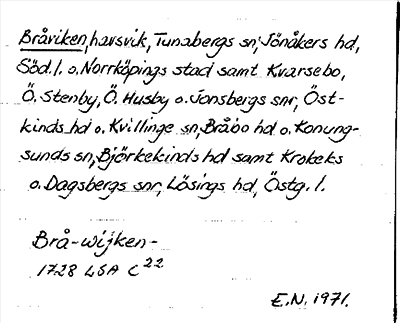 Bråviken, havsvik, Tunabergs sn, Jönåkers hd,
Söd. l. o. Norrköpings stad samt Kvarsebo,
Ö. Stenby, Ö. Husby o. Jonsbergs snr, Öst-
kinds hd o. Kvillinge sn, Bråbo hd o. Konung-
sunds sn, Björkekinds hd samt Krokeks
o. Dagsbergs snr, Lösings hd, Östg. l.
Brå-wijken-
1728 LSA C22
E.N. 1971.